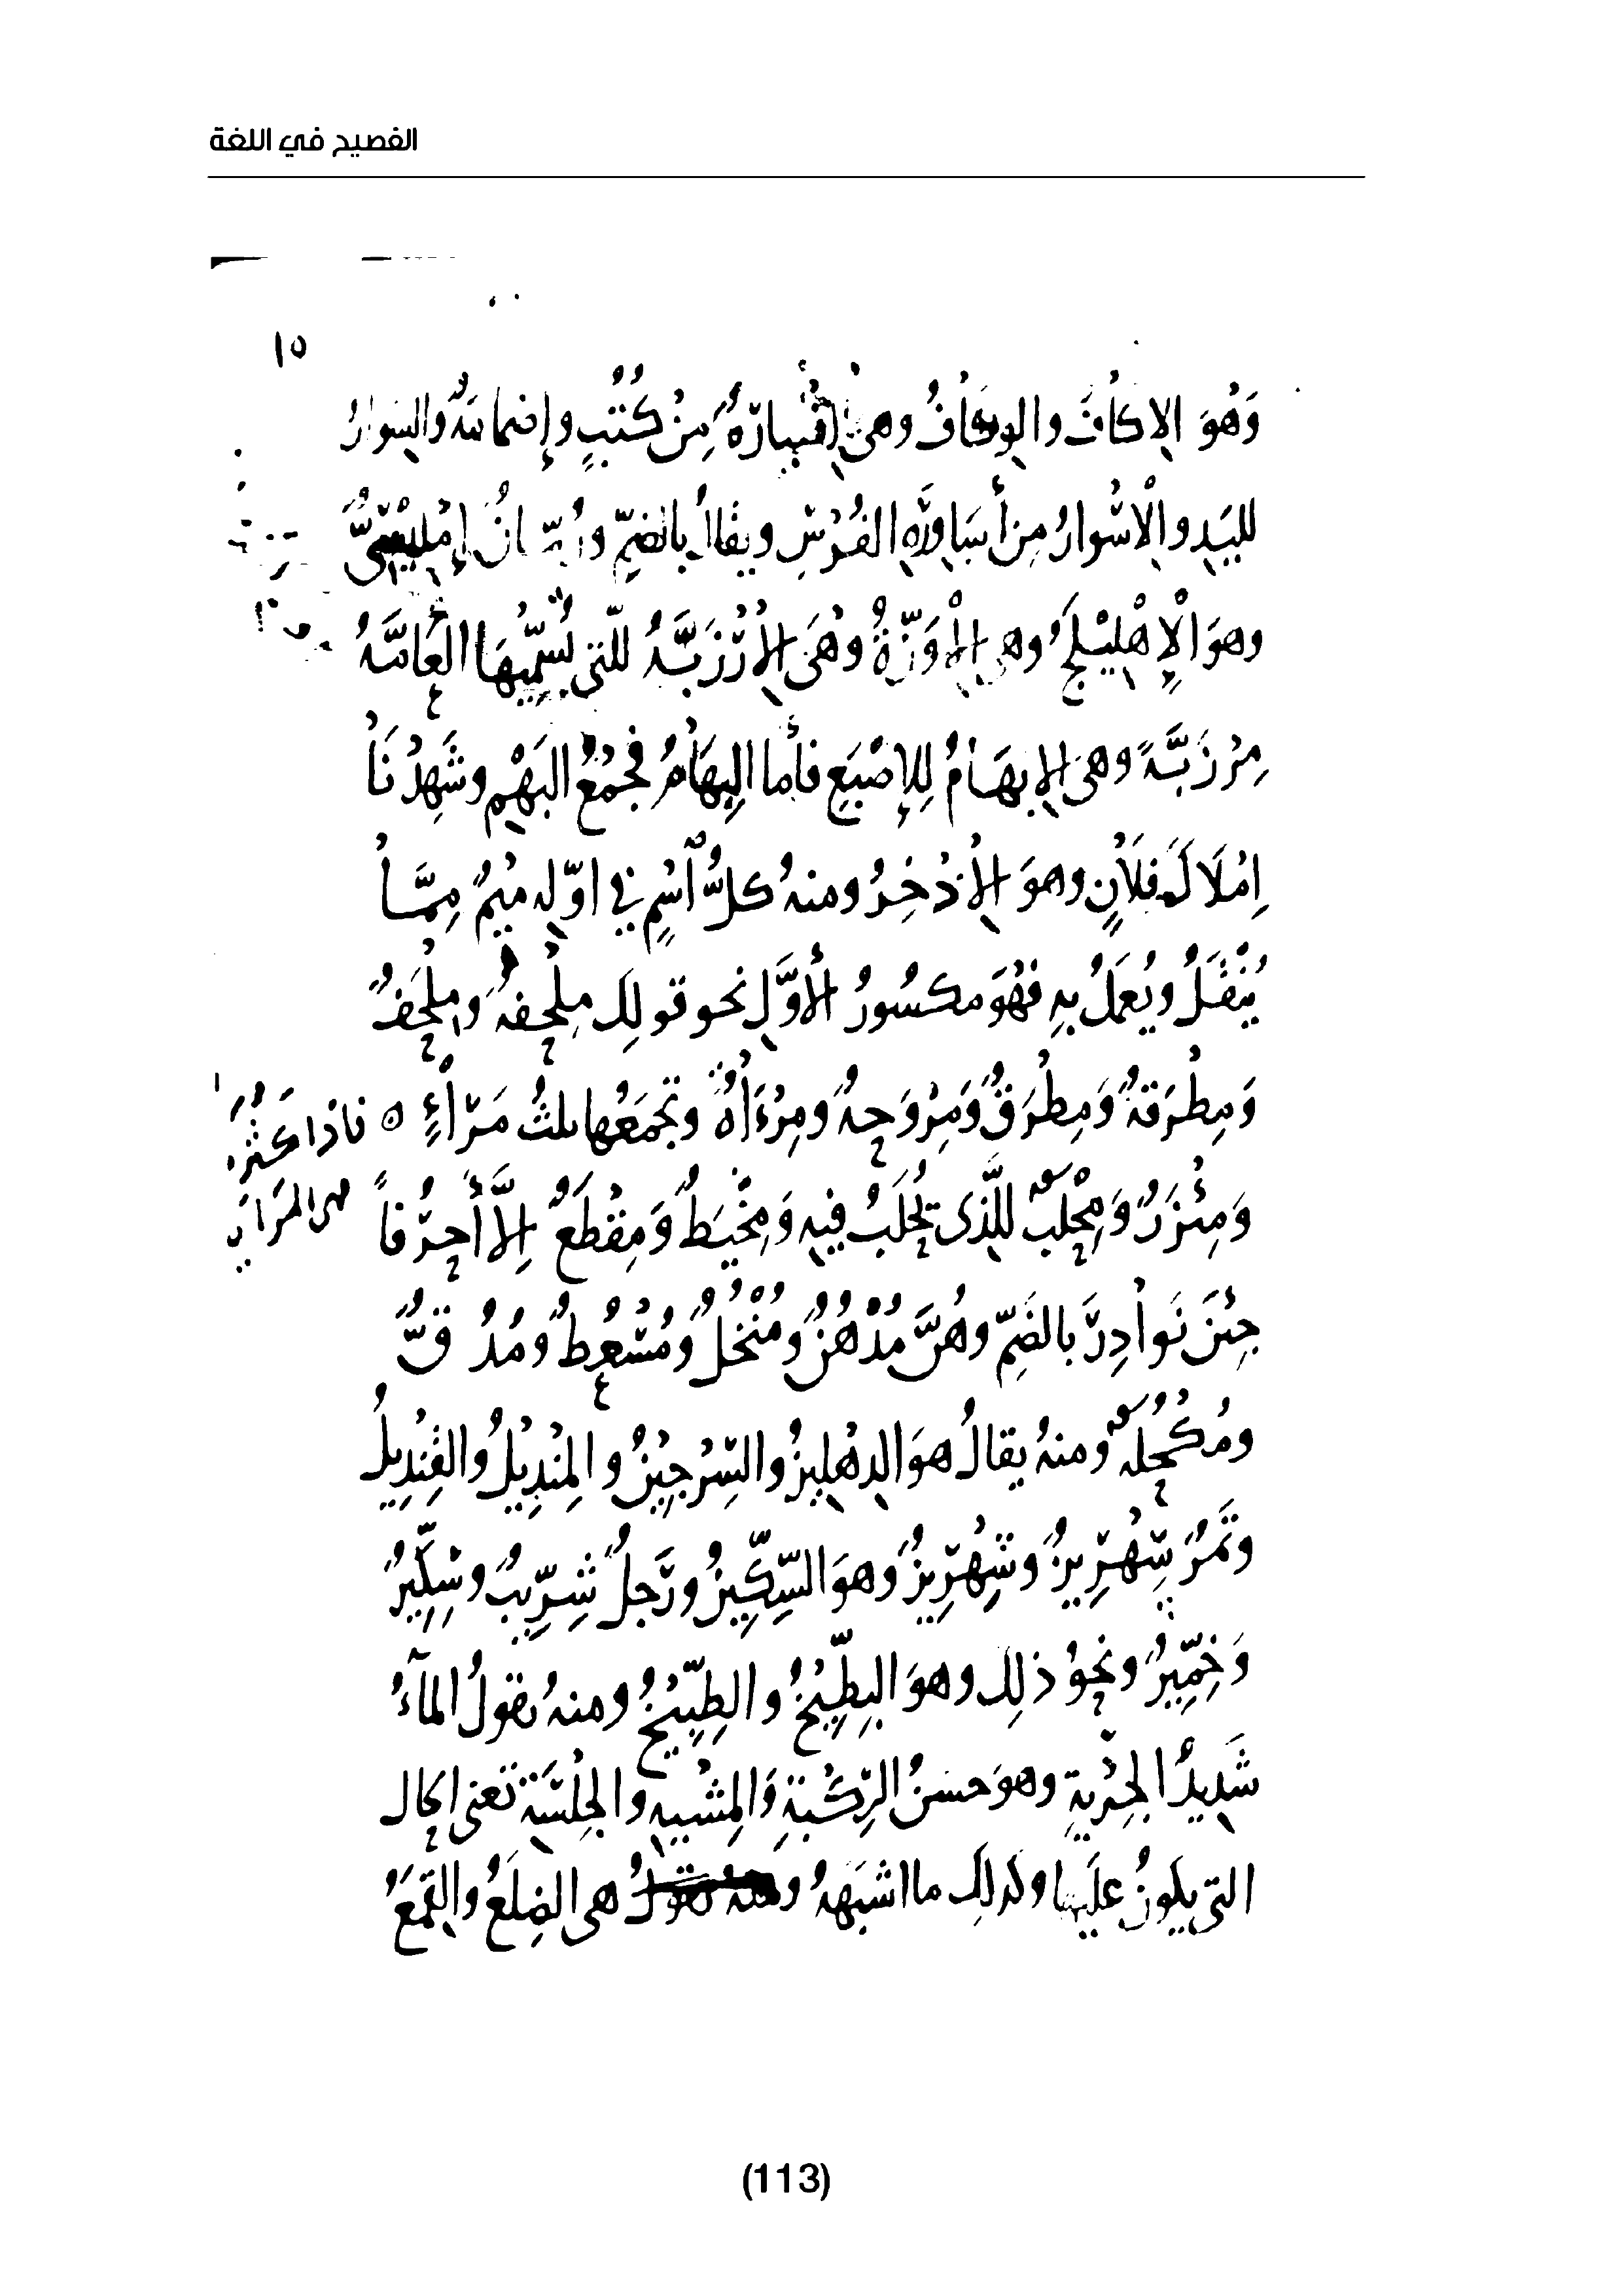 الفصيح في اللغة
١٥
وَهُوَ الإِكَافُ والوِكَافُ وهى إِضْبَارَةٌ مِنْ كُتُبٍ وإِضمامَةٌ والسِوارُ
لليَدِ والْإِسْوارُ مِن أَسَاوِرَةِ الفُرْسِ ويقالُ بالضَمِّ ورُمَّانٌ إِمْلِيسِىٌّ
وهوَ الْإِهْلِيْلَجُ وهى الْإِوَزَّةُ وهْىَ الإِرْزَبَّةُ للّتى تُسَمِّيْهَا العَامَّةُ
مِرْزَبَّةً وهىَ الإِبهَامُ لِلإِصْبَعِ فأَما البِهَامُ فجَمْعُ البَهْمِ وشَهِدْنَا
إِمْلَاكَ فُلَانٍ وهوَ الإِذْخِرُ ومنهُ كلُّ اسْمٍ في اوّلِهِ مِيْمٌ مِمَّا
يُنْقَلُ ويُعمَلُ بِهِ فهْوَ مكسُورُ الأَوَّلِ نحو قولِكَ مِلْحفةٌ ومِلْحَفٌ
وَمِطْرَقةٌ وَمِطْرَقٌ وَمِرْوَحةٌ ومِرْءَاةٌ وتجمَعُها ثلثُ مَرَآءٍ ٥ فاذا كَثُرَ
وَمِئْزَرٌ وَمِحْلَبٌ لِلَّذِى يُحْلَبُ فيهِ وَمِخْيَطٌ وَمِقْطَعٌ إِلَّا أَحرُفاً فهى المَرَايا
جِئنَ نَوادِرَ بالضَمِّ وهُنَّ مُدْهُنٌ ومُنْخُلٌ ومُسْعُطٌ ومُدُقٌّ
ومُكْحُلةٌ ومنهُ يقالُ هوَ الدِهْلِيزُ والسِّرْجِيْنُ والمِنْدِيْلُ والقِنْدِيلُ
وتَمْرٌ سِهْرِيزٌ وشِهْرِيزٌ وهوَ السِّكِّينُ ورَجلٌ شِرِّيبٌ وسِكِّيرٌ
وَخِمِّيرٌ ونحوُ ذلِك وهوَ البِطِّيْخُ والطِبِّيْخُ ومنهُ تقولُ المآءُ
شَدِيدُ الجِرْيةِ وهوَ حسَنُ الرِّكْبَةِ وَالمِشْيةِ والجِلْسَةِ تَعنى الحال
التى يكونُ عليها وكذلِكَ ما اشبَهَهُ هى الضِلَعُ والقِمَعُ
(113)